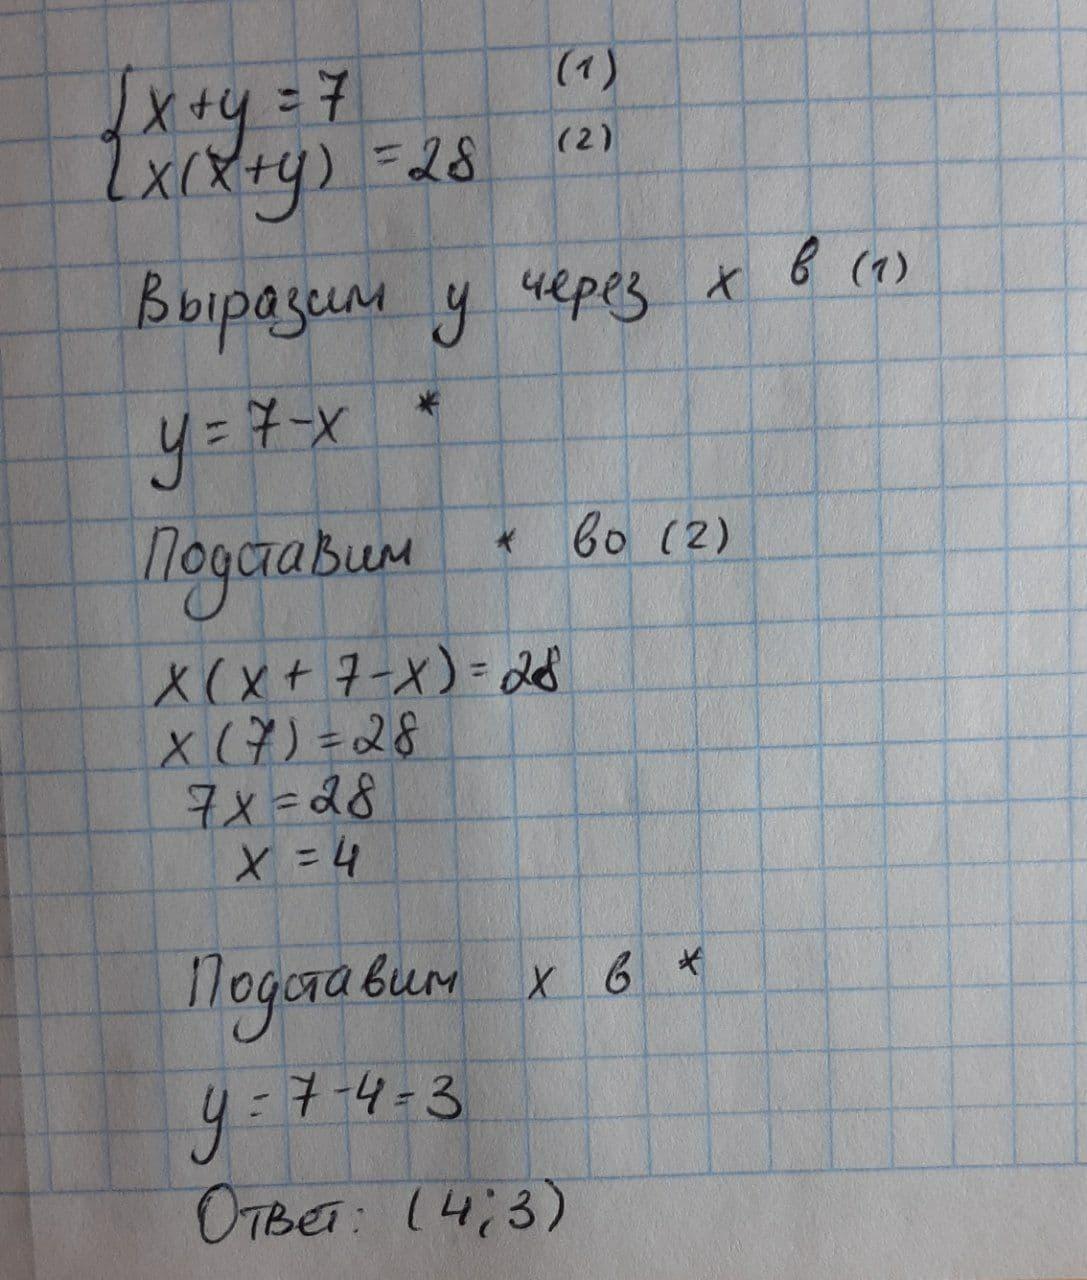 {x+y=7 (1)
{x(x+y) =28 (2)
Выразим y через x в (1)
y=7-x *
Подставим * во (2)
x(x+7-x)=28
x(7)=28
7x=28
x=4
Подставим x в *
y=7-4=3
Ответ: (4;3)